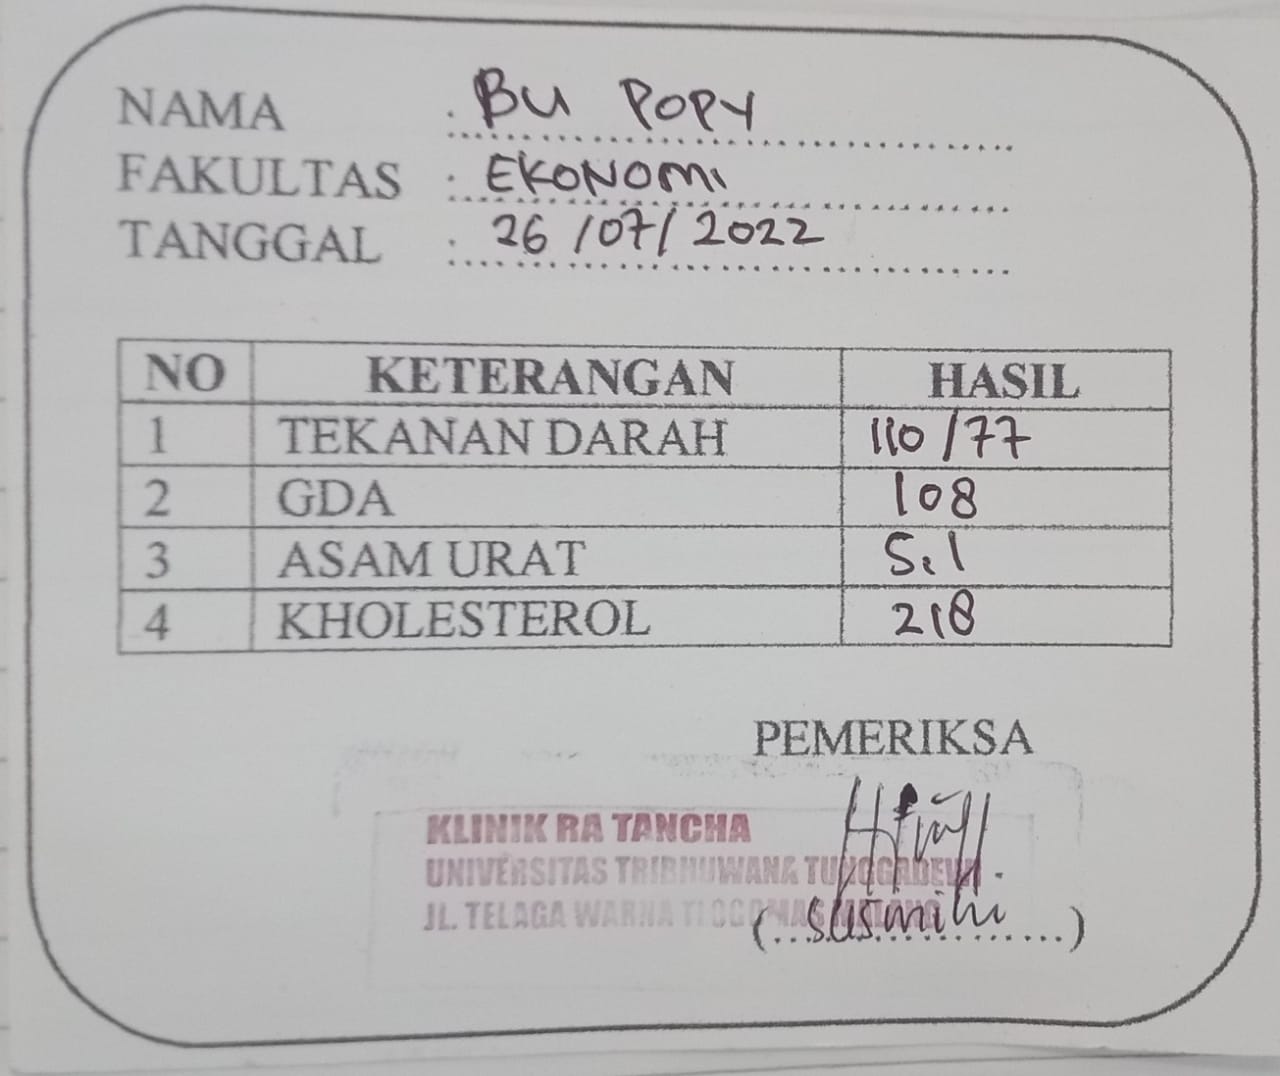 NAMA : BU POPY
FAKULTAS : EKONOMI
TANGGAL : 26/07/2022
NO KETERANGAN HASIL
1 TEKANAN DARAH 110/77
2 GDA 108
3 ASAM URAT 5.1
4 KHOLESTEROL 218
PEMERIKSA
KLINIK RA TANCHA
UNIVERSITAS TRIBHUWANA TUNGGADEWI
JL. TELAGA WARNA TLOGOMAS MALANG